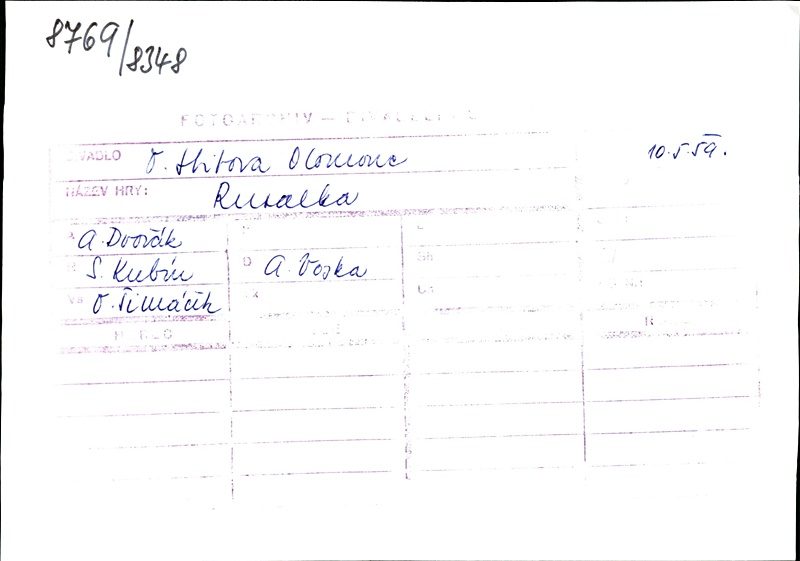 8769/8348
FOTOARCHIV – DIVADELNÍ
DIVADLO O. Stibora Olomouc 10.5.59.
NÁZEV HRY: Rusalka
A A. Dvořák
R S. Kubín D A. Voska
Vs O. Šimáček